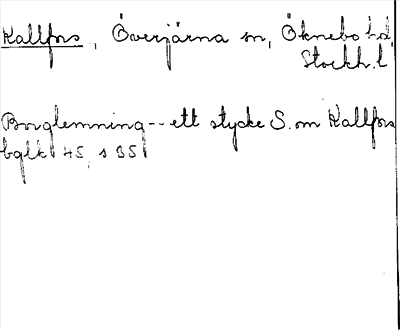 Kallfors, Överjärna sn, Öknebo hd,
Stockh. l
Borglemning -- ett stycke S. om Kallfors
bglk 45, s 35